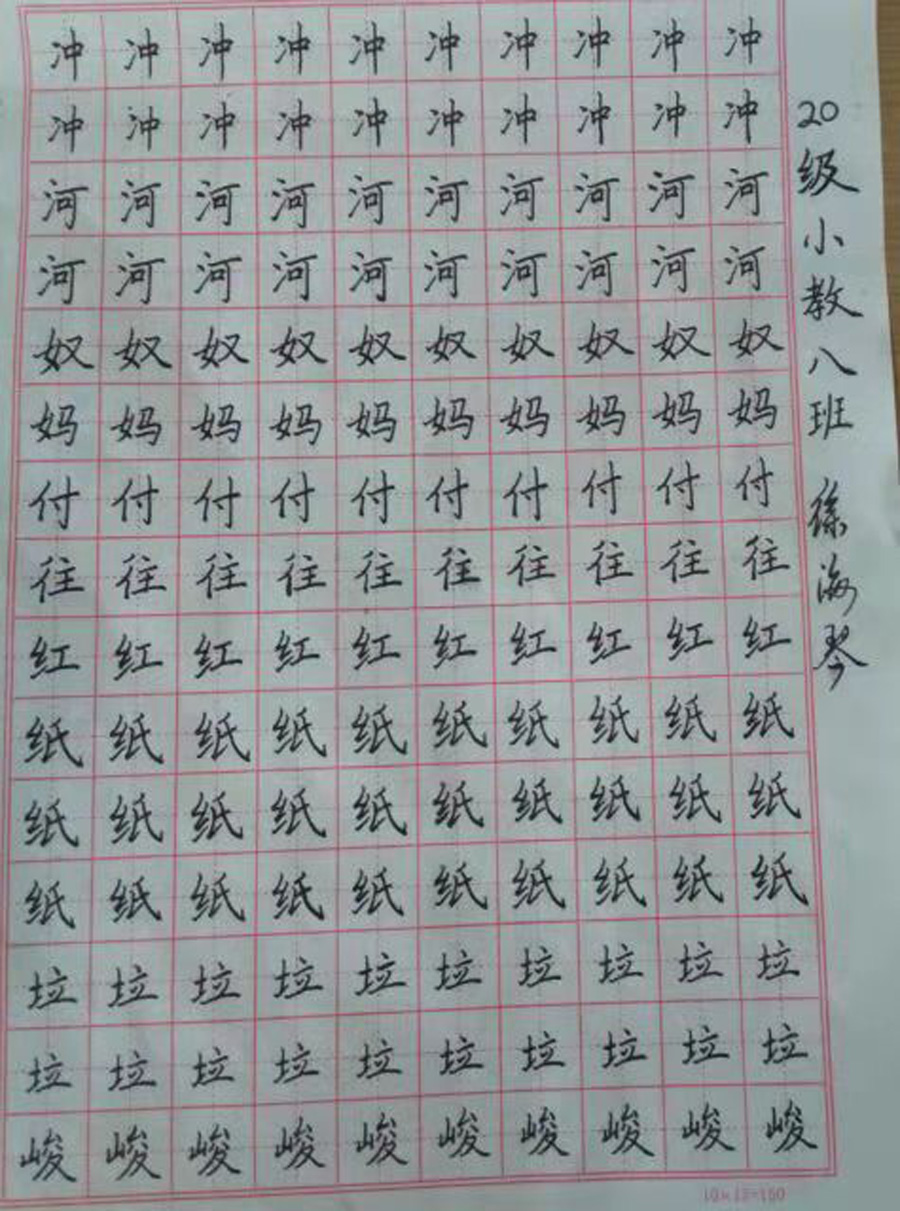 冲冲冲冲冲冲冲冲冲冲
冲冲冲冲冲冲冲冲冲冲
河河河河河河河河河河
河河河河河河河河河河
奴奴奴奴奴奴奴奴奴奴
妈妈妈妈妈妈妈妈妈妈
付付付付付付付付付付
往往往往往往往往往往
红红红红红红红红红红
纸纸纸纸纸纸纸纸纸纸
纸纸纸纸纸纸纸纸纸纸
纸纸纸纸纸纸纸纸纸纸
垃垃垃垃垃垃垃垃垃垃
垃垃垃垃垃垃垃垃垃垃
峻峻峻峻峻峻峻峻峻峻
20级小教八班 徐海琴
10×15=150